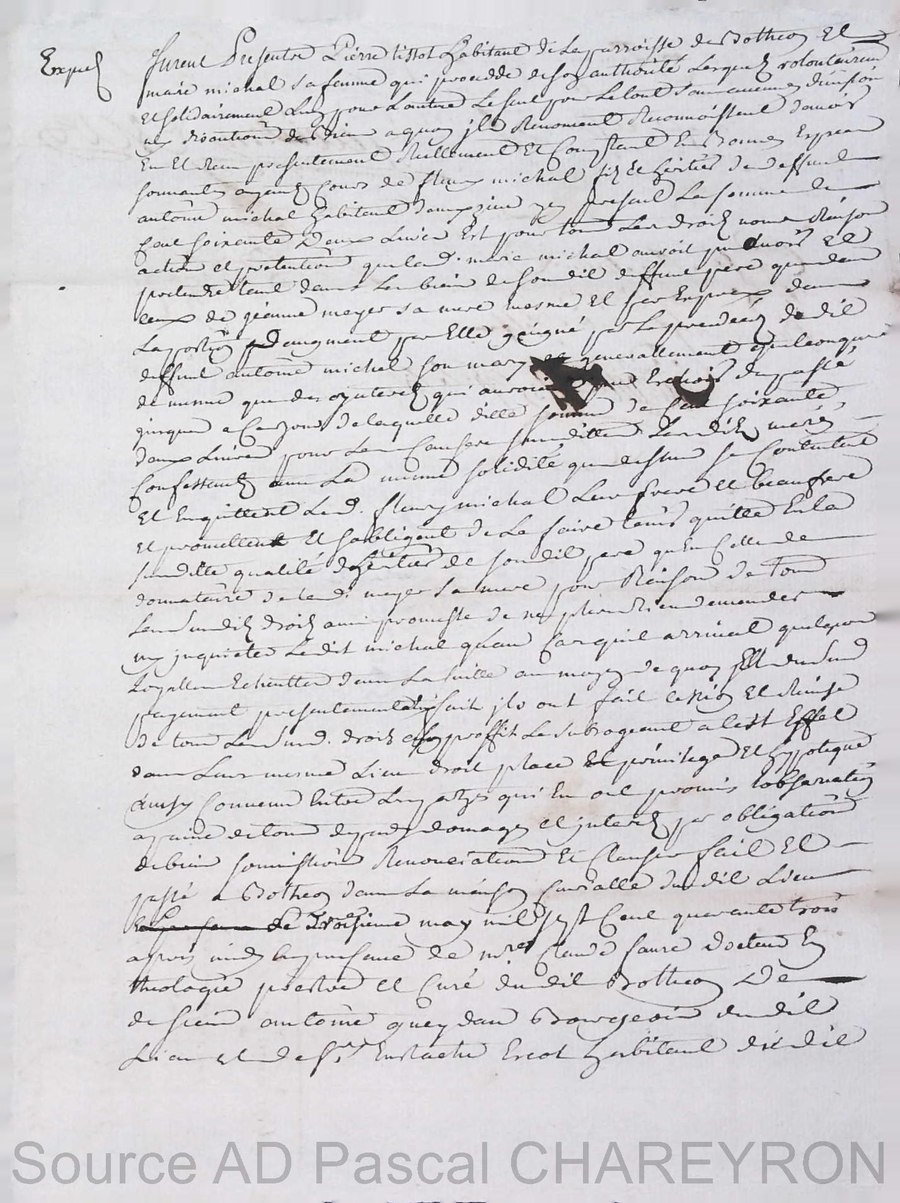 Exped
furent presentz Pierre tissot habitant de la parroisse de Botheon Et
marie michal sa femme qui procedde de son authorité Lesquelz volontairem
Et solidairement Lun pour Lautre Le seul pour Le tout sans aucunes division
ny discution de biens a quoy ilz Renoncent Reconnoissent davoir
Eu Et Receu presentement Reellement Et Comptant En bonnes Especes
sonnantes ayant Cours de fleury michal filz Et heritier de deffunt
antoine michal habitant present La somme de
Cent soixante deux Livres Et pour tous Les droitz noms Raisons
action et pretentions que lad. marie michal auroit peu avoir et
pretendre tant dans Les biens de son dit deffunt pere que dans
ceux de jeanne meyer sa mere mesme Et par Exprez dans
La portion daugment par Elle gaigné par Le predécéz de dit
deffunt antoine michal son mary et generallement quelconque
de mesme que des qui auroient du passé
jusques a Ce jour de laquelle ditte somme de Cent soixante
deux Livres pour Les Causes susdittes Les ditz mariés
Confessent avec La mesme solidité que dessus se Contentent
Et Enquittent Led. fleury michal Leur frere Et beaufrere
Et promettent Et sobligent de Le faire tenir quitte En la
susditte qualité dheritier de son dit pere qu'en Celle de
donnataire de lad. meyer sa mere pour Raison de tous
Les susditz droitz avec promesse de ne plus Rien demander
ny inquieter Le dit michal quau Cas quil arrivat quelques
Loyalles Echeuttes dans La suitte au moyen de quoy Et dudit
payement presentement fait ilz ont fait cession Et Remise
de tous Les susd. droitz a son proffit Le subrogeant a Cest Effet
dans Leur mesme Lieu droit place Et privilege Et hypoteque
ainsy Convenu Entre Les partyes qui En ont promis Lobservation
a paine de tous despens domages Et interetz par obligation
de biens soumissions Renonciations Et Clauses fait Et
passé a Botheon dans La maison Curialle du dit Lieu
Le troisieme may mil sept Cent quarante trois
apres midy En presence de mre Claude faure docteur En
theologie prestre et Curé du dit Botheon De
de sieur antoine queydan Bourgeois du dit
Lieu Et de sr Eustache Escot habitant du dit
Source AD Pascal CHAREYRON